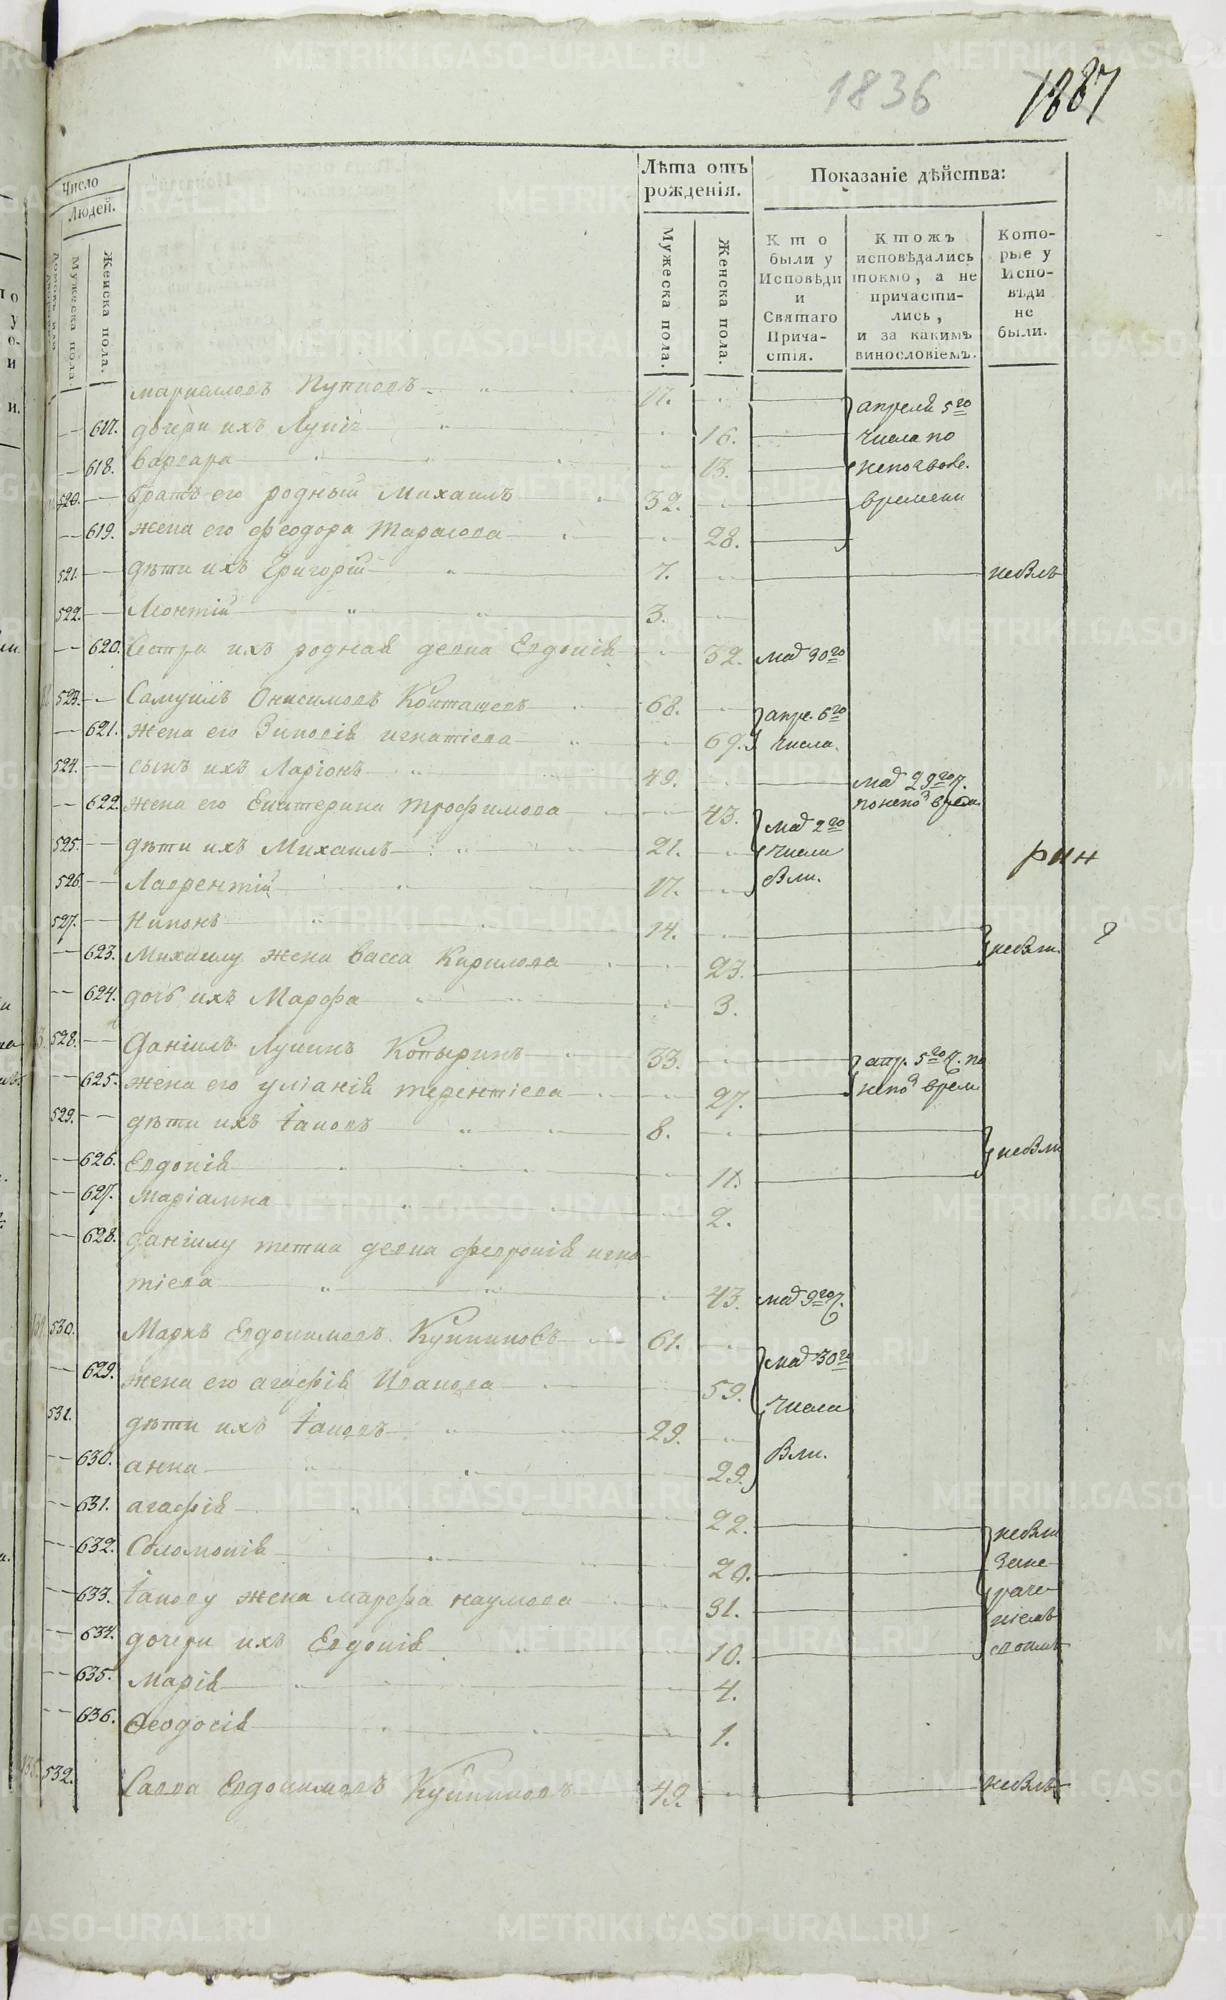 1836 1887
Число Людей.
Лѣта отъ рожденія.
Показаніе дѣйства:
Мужеска пола.
Женска пола.
Мужеска пола.
Женска пола.
Кто были у Исповѣди и Святаго Прича-стія.
Ктожъ исповѣдались токмо, а не причасти-лись, и за какимъ винословіемъ.
Кото-рые у Испо-вѣди не были.
17. апреля 5го
617. дочери ихъ 16. числа по
618. Варвара 13.
520. братъ его родный Михаилъ 32. времени
619. жена его Феодора Тарасова 28.
521. дѣти ихъ Григорій 7. небылъ
522. Леонтій 3.
620. Сестра ихъ родная девка Евдокія 32. мая 30го
523. Самуилъ Онисимовъ 68. апре. 6го
621. жена его Зиновія игнатіева 69. числа.
524. сынъ ихъ Ларіонъ 49. мая 29го ч.
622. жена его Екатерина Трофимова 43. мая 2го
525. дѣти ихъ Михаилъ 21. числа
рин
526. Лаврентій 17. были.
527. 14.
623. Михаилу жена Васса Кирилова 23. небыли.
624. дочь ихъ Марфа 3.
528. Даніилъ Лукинъ Копыринъ 33. апр. 5го ч. по
625. жена его Уліанія терентіева 27. непод врем
529. дѣти ихъ Іаковъ 8.
626. Евдокія 11. небыли
627. Маріамна 2.
628. Даніилу тетка девка Февронія игна-
тіева 43. мая 9го ч.
530. Маркъ Евдокимовъ 61. мая 30го
629. жена его агафія Иванова 59. числа
531. дѣти ихъ Іаковъ 29. были.
630. анна 29.
631. агафія 22. небыли
632. Соломонія 20. за не-
633. Іакову жена марфа наумова 31. раче-
634. дочери ихъ Евдокія 10. ніемъ
635. Марія 4.
636. Феодосія 1.
532. Савва Евдокимовъ 49. небылъ
METRIKI.GASO-URAL.RU